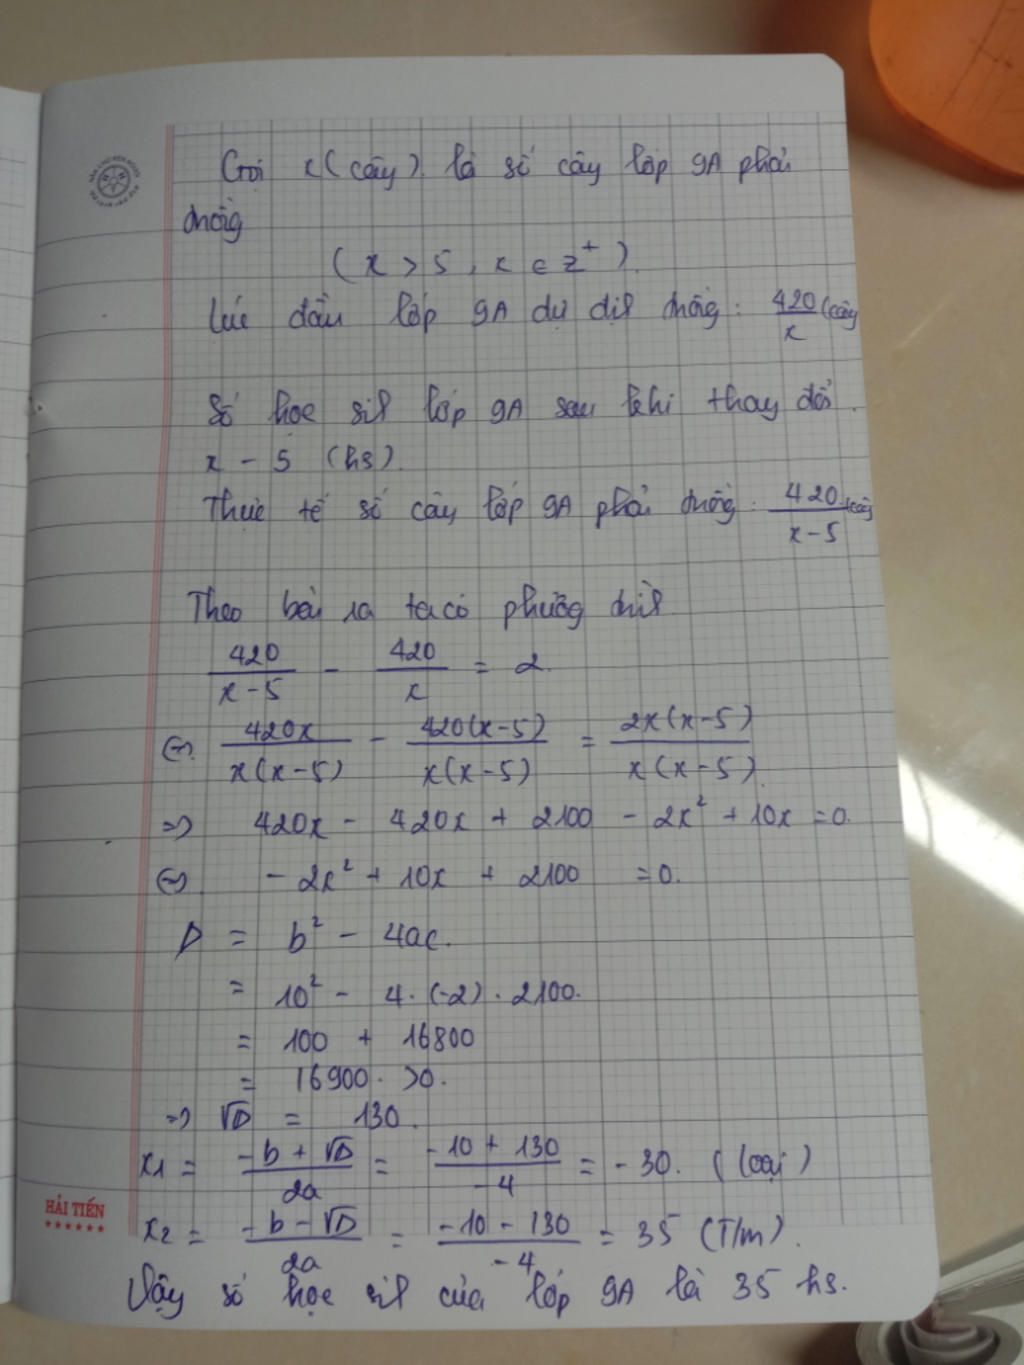 Gọi x (cây) là số cây lớp 9A phải
trồng
(x > 5, x ∈ Z⁺).
Lúc đầu lớp 9A dự định trồng: 420/x (cây
Số học sinh lớp 9A sau khi thay đổi.
x - 5 (hs).
Thực tế số cây lớp 9A phải trồng: 420/(x-5) (cây
Theo bài ra ta có phương trình
420/(x-5) - 420/x = 2.
⇔ 420x/(x(x-5)) - 420(x-5)/(x(x-5)) = 2x(x-5)/(x(x-5))
⇒ 420x - 420x + 2100 - 2x² + 10x = 0.
⇔ -2x² + 10x + 2100 = 0.
Δ = b² - 4ac.
= 10² - 4.(-2).2100.
= 100 + 16800
= 16900. >0.
⇒ √Δ = 130.
x1 = (-b + √Δ)/2a = (-10 + 130)/-4 = -30. (loại)
x2 = (-b - √Δ)/2a = (-10 - 130)/-4 = 35 (T/m).
Vậy số học sinh của lớp 9A là 35 hs.
HẢI TIẾN